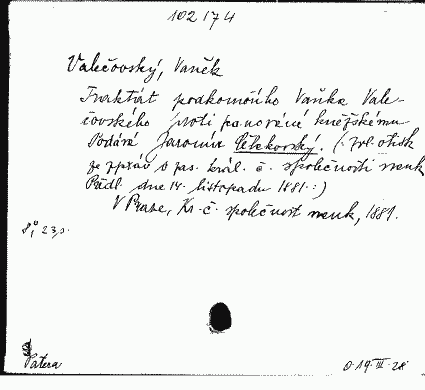 102174
Valečovský, Vaněk
Traktát podkomořího Vaňka Vale-
čovského proti panování kněžskému.
Podává Jaromír Čelakovský. (: Zvl. otisk
ze zpráv o zas. král. č. společnosti nauk
Předl. dne 14. listopadu 1881. :)
V Praze, Kr. č. společnost nauk, 1881.
8°, 23 s.
Patera
0 19-III-28